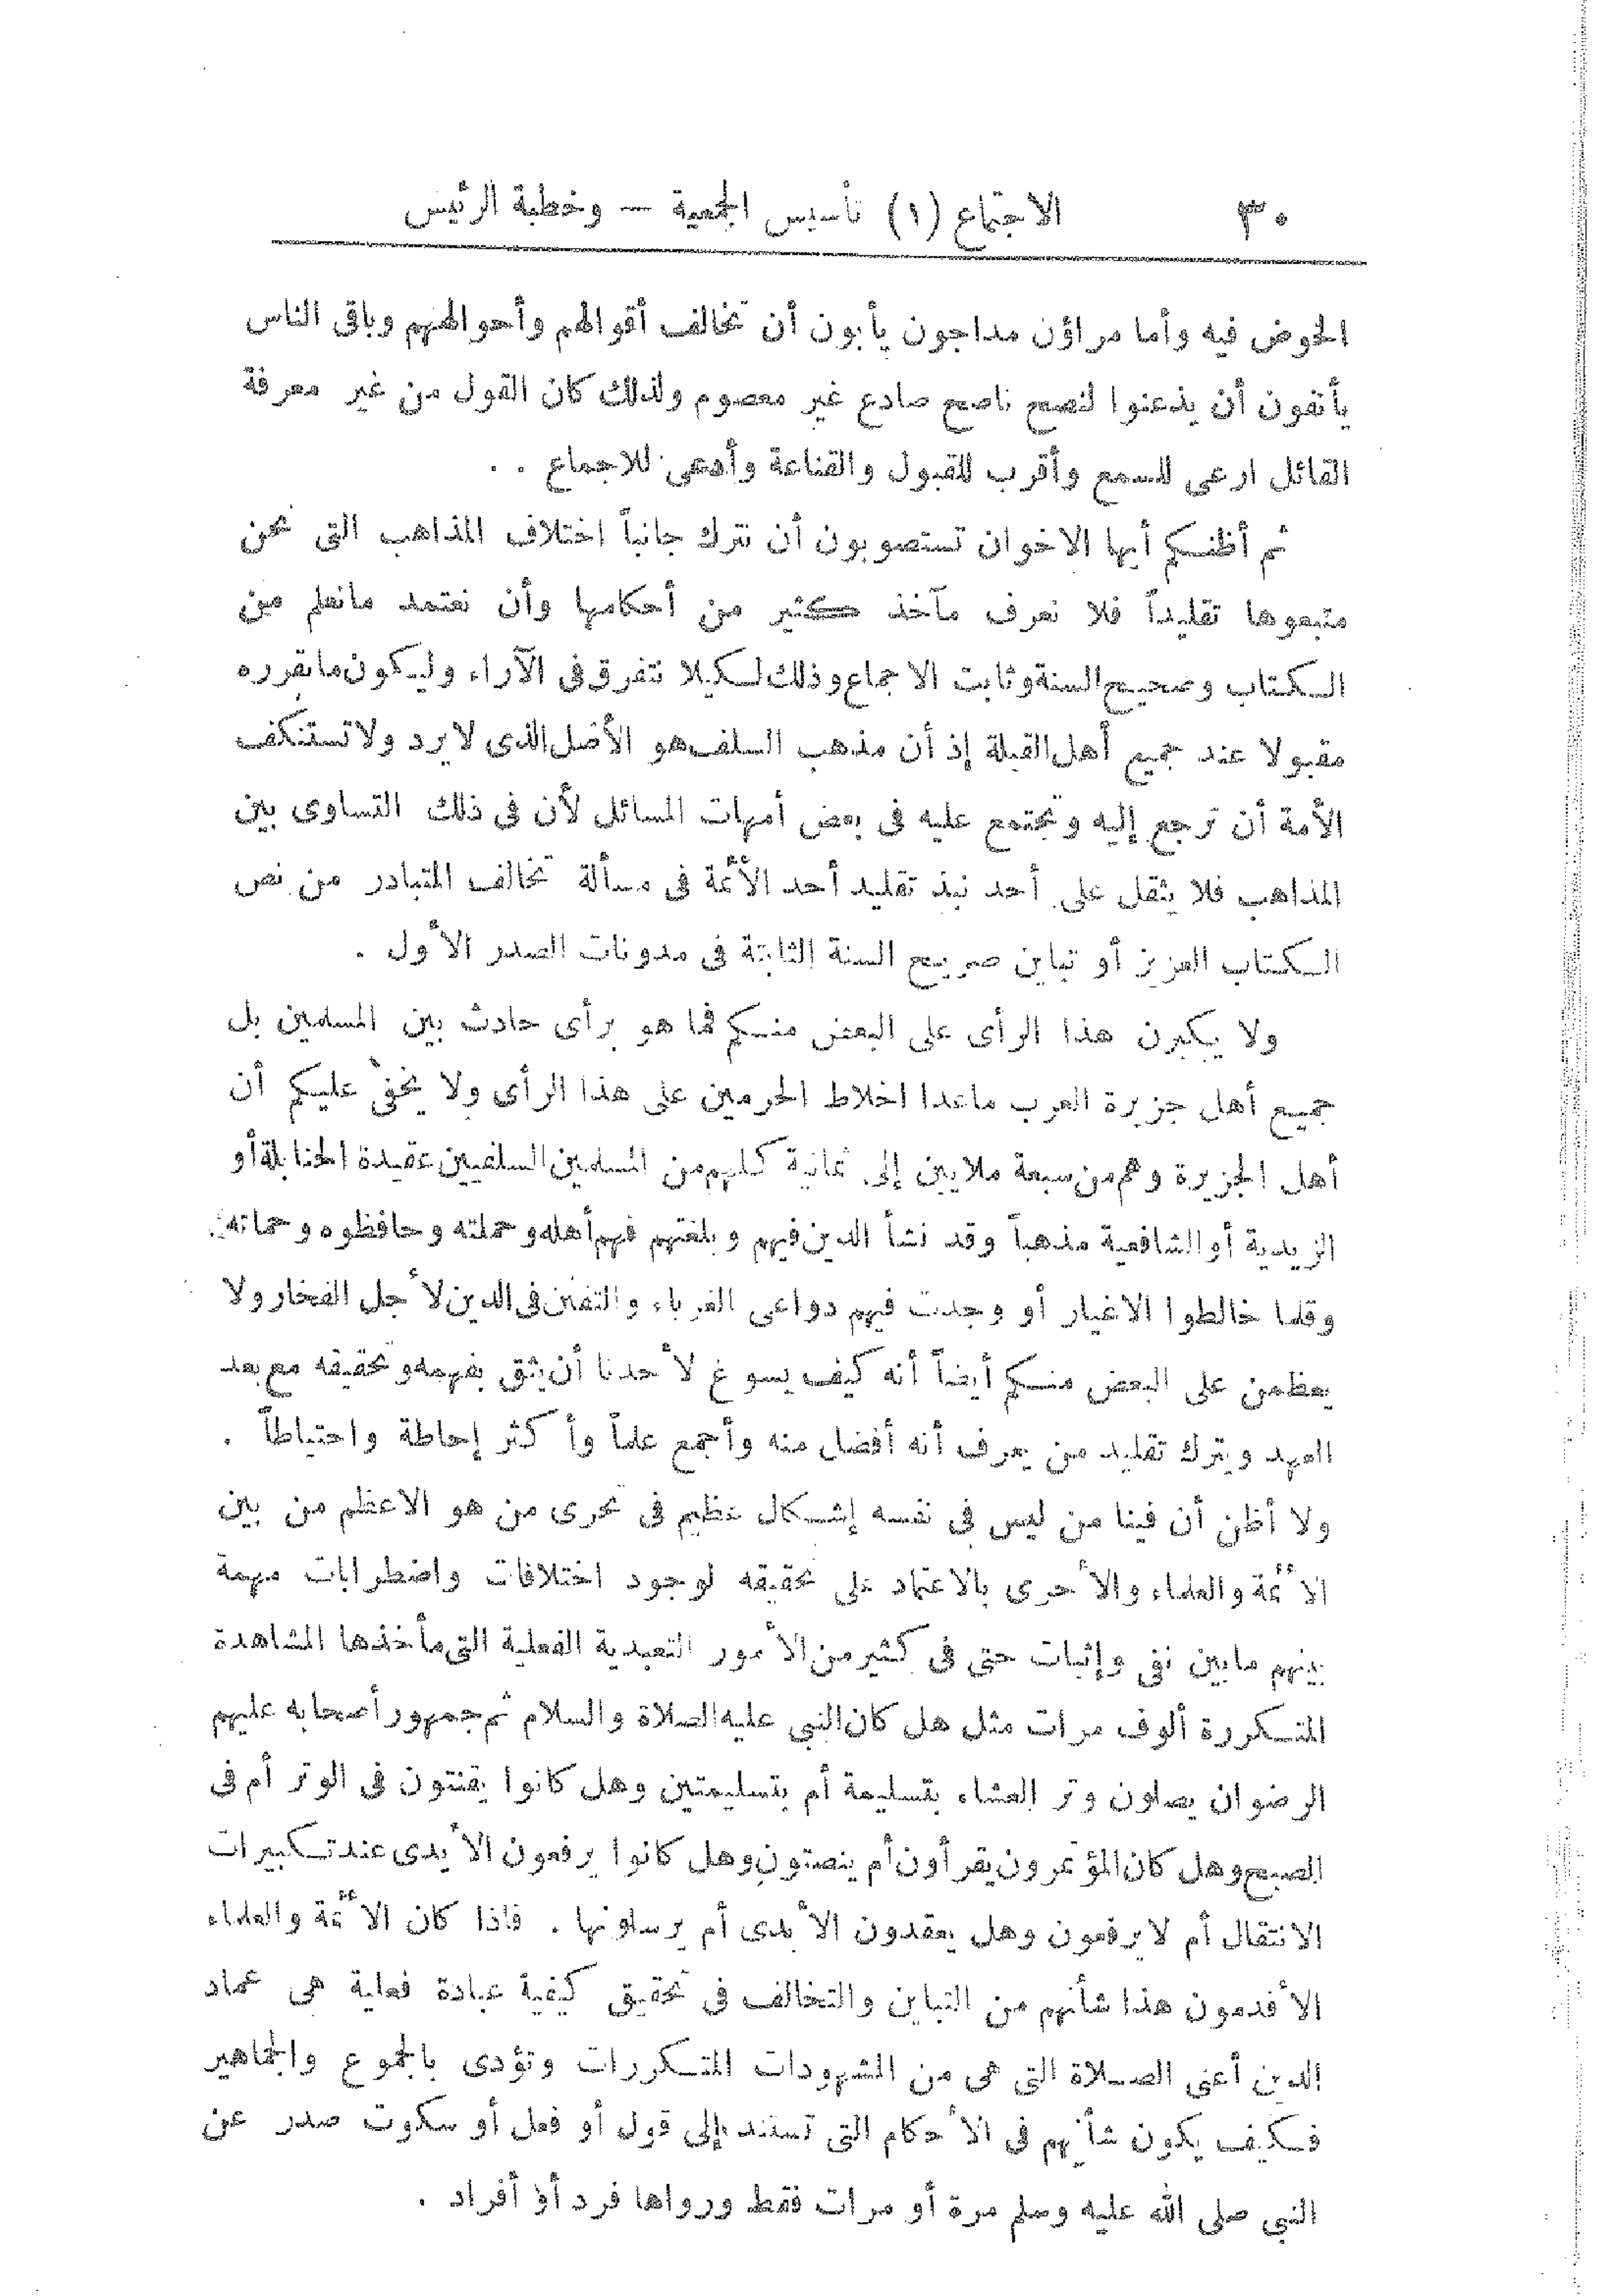 ٣٠ الاجتماع (١) تأسيس الجمعية — وخطبة الرئيس
الخوض فيه وأما مراؤن مداجون يأبون أن تخالف أقوالهم وأحوالهم وباقى الناس
يأنفون أن يذعنوا لنصح ناصح صادع غير معصوم ولذلك كان القول من غير معرفة
القائل ارعى للسمع وأقرب للقبول والقناعة وأدعى للاجماع . .
ثم أظنكم أيها الاخوان تستصوبون أن نترك جانباً اختلاف المذاهب التى نحن
متبعوها تقليداً فلا نعرف مآخذ كثير من أحكامها وأن نعتمد مانعلم من
الكتاب وصحيح السنة وثابت الاجماع وذلك لكيلا نتفرق فى الآراء وليكون ما نقرره
مقبولا عند جميع أهل القبلة إذ أن مذهب السلف هو الأصل الذى لا يرد ولا تستنكف
الأمة أن ترجع إليه وتجتمع عليه فى بعض أمهات المسائل لأن فى ذلك التساوى بين
المذاهب فلا يثقل على أحد نبذ تقليد أحد الأئمة فى مسألة تخالف المتبادر من نص
الكتاب العزيز أو تباين صريح السنة الثابتة فى مدونات الصدر الأول .
ولا يكبرن هذا الرأى على البعض منكم فما هو برأى حادث بين المسلمين بل
جميع أهل جزيرة العرب ماعدا اخلاط الحرمين على هذا الرأى ولا يخفى عليكم أن
أهل الجزيرة وهم من سبعة ملايين إلى ثمانية كلهم من المسلمين السلفيين عقيدة الحنابلة أو
الزيدية أو الشافعية مذهباً وقد نشأ الدين فيهم وبلغتهم فهم أهله وحملته وحافظوه وحماته
وقلما خالطوا الاغيار أو وجدت فيهم دواعى الغرباء والتفنن فى الدين لأجل الفخار ولا
يعظمن على البعض منكم أيضاً أنه كيف يسوغ لأحدنا أن يثق بفهمه وتحقيقه مع بعد
العهد ويترك تقليد من يعرف أنه أفضل منه وأجمع علماً وأكثر إحاطة واحتياطاً .
ولا أظن أن فينا من ليس فى نفسه إشكال عظيم فى تحرى من هو الاعظم من بين
الأئمة والعلماء والأحرى بالاعتماد على تحقيقه لوجود اختلافات واضطرابات مهمة
بينهم مابين نفى وإثبات حتى فى كثير من الأمور التعبدية الفعلية التى مأخذها المشاهدة
المتكررة ألوف مرات مثل هل كان النبي عليه الصلاة والسلام ثم جمهور أصحابه عليهم
الرضوان يصلون وتر العشاء بتسليمة أم بتسليمتين وهل كانوا يقنتون فى الوتر أم فى
الصبح وهل كان المؤتمرون يقرأون أم ينصتون وهل كانوا يرفعون الأيدى عند تكبيرات
الانتقال أم لا يرفعون وهل يعقدون الأيدى أم يرسلونها . فاذا كان الأئمة والعلماء
الأقدمون هذا شأنهم من التباين والتخالف فى تحقيق كيفية عبادة فعلية هى عماد
الدين أعنى الصلاة التى هى من المشهودات المتكررات وتؤدى بالجموع والجماهير
فكيف يكون شأنهم فى الأحكام التى تستند إلى قول أو فعل أو سكوت صدر عن
النبي صلى الله عليه وسلم مرة أو مرات فقط ورواها فرد أو أفراد .